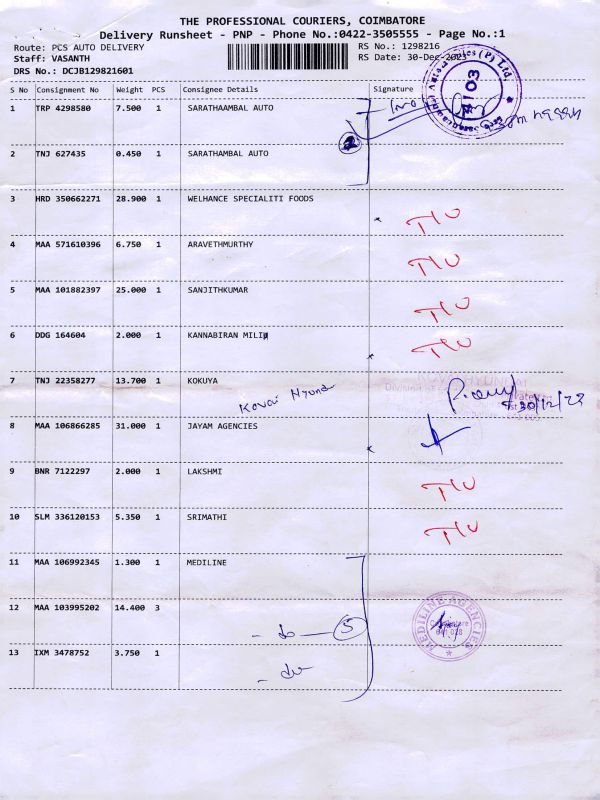 THE PROFESSIONAL COURIERS, COIMBATORE
Delivery Runsheet - PNP - Phone No.:0422-3505555 - Page No.:1
Route: PCS AUTO DELIVERY RS No.: 1298216
Staff: VASANTH RS Date: 30-Dec-2023
DRS No.: DCJB129821601
S No Consignment No Weight PCS Consignee Details Signature
1 TRP 4298580 7.500 1 SARATHAAMBAL AUTO
2
2 TNJ 627435 0.450 1 SARATHAMBAL AUTO
3 HRD 350662271 28.900 1 WELHANCE SPECIALITI FOODS
4 MAA 571610396 6.750 1 ARAVETHMURTHY
5 MAA 101882397 25.000 1 SANJITHKUMAR
6 DDG 164604 2.000 1 KANNABIRAN MILIN
7 TNJ 22358277 13.700 1 KOKUYA
Kovai Hyundai
30/12/23
8 MAA 106866285 31.000 1 JAYAM AGENCIES
9 BNR 7122297 2.000 1 LAKSHMI
10 SLM 336120153 5.350 1 SRIMATHI
11 MAA 106992345 1.300 1 MEDILINE
12 MAA 103995202 14.400 3
- do - 5
MEDILINE AGENCIES
Coimbatore
641 028
13 IXM 3478752 3.750 1
- do